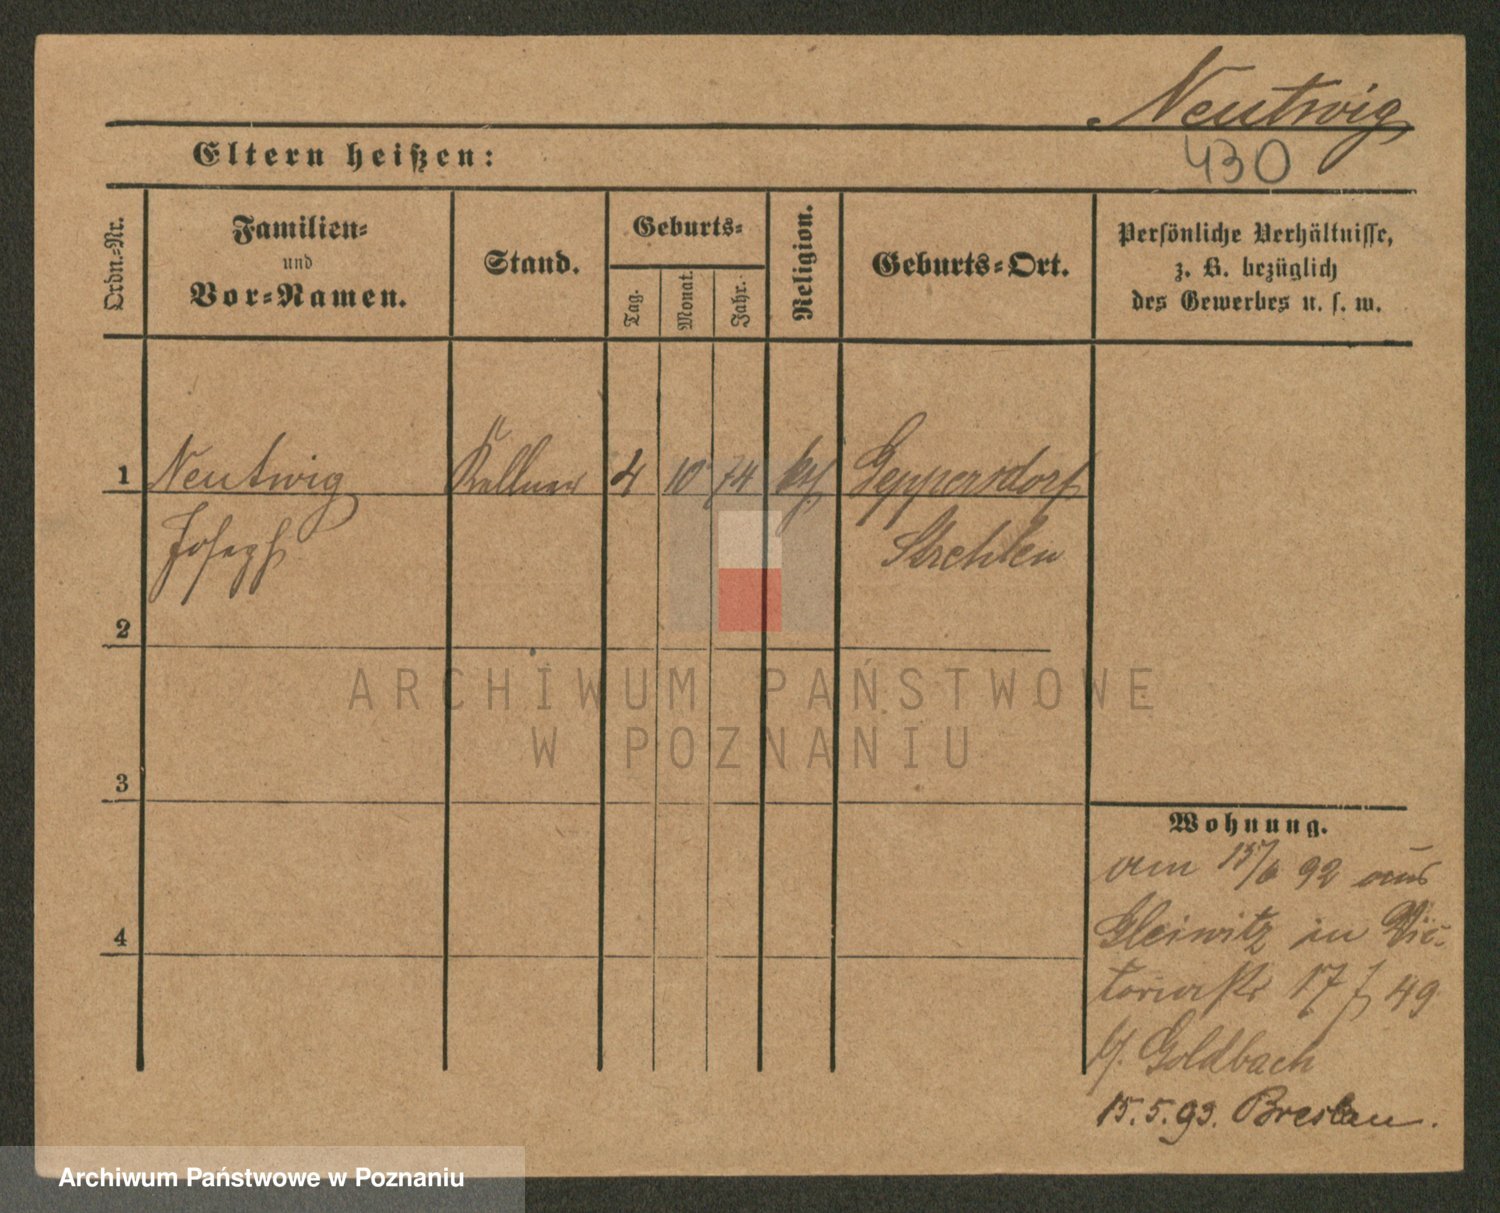 Neutwig
430
Eltern heißen:
Ordn.-Nr.
Familien-
und
Vor-Namen.
Stand.
Geburts-
Tag.
Monat.
Jahr.
Religion.
Geburts-Ort.
Persönliche Verhältnisse,
z. B. bezüglich
des Gewerbes u. s. w.
1 Neutwig Kellner 4 10 74 Geppersdorf
Joseph Strehlen
2
3
4
Wohnung.
am 15/6 92 aus
Gleiwitz in Vic-
toriastr 17 49
Goldbach
15.5.93. Breslau.
ARCHIWUM PAŃSTWOWE
W POZNANIU
Archiwum Państwowe w Poznaniu